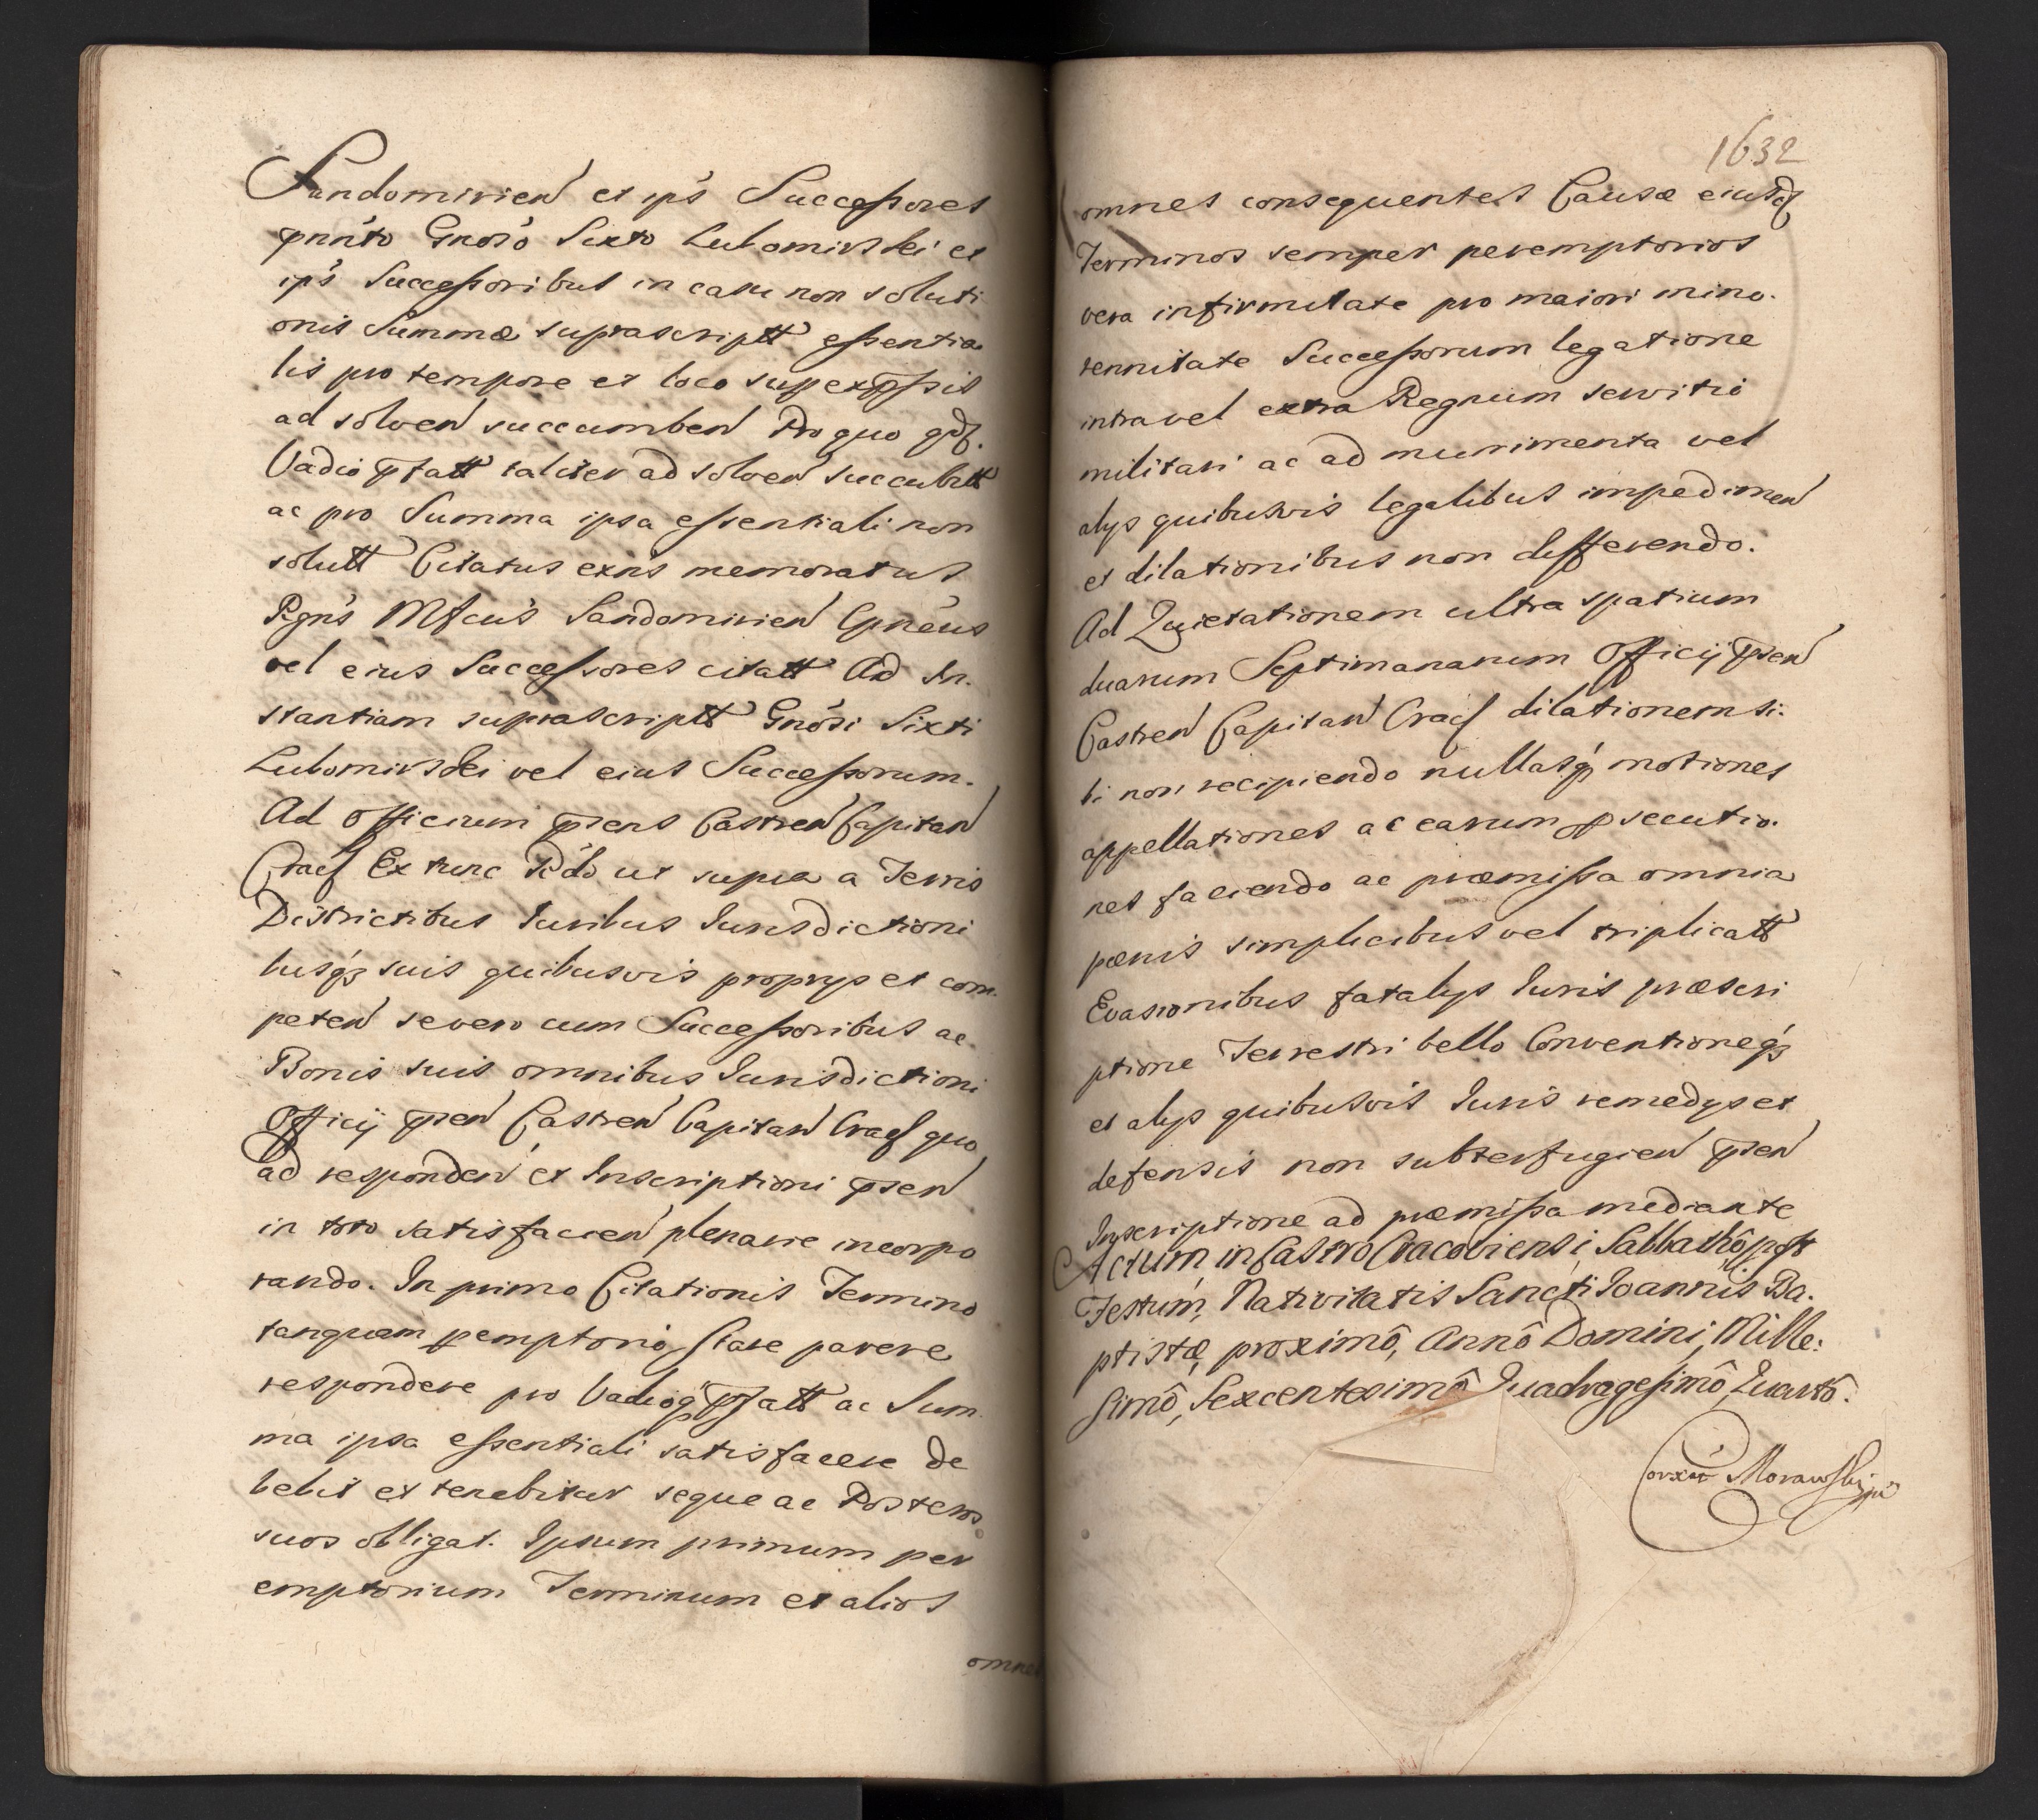 Sandomirien et ips Successores
pnnto Gnoso Sixto Lubomirskei et
ips Successoribus in casu non soluti
onis Summæ suprascriptt essentia
lis pro tempore et loco sup expssis
ad solven succumben Pro quo qdz.
Vadio pfatt taliter ad solven succubitt
ac pro Summa ipsa essentiali non
solutt Citatus exns memoratus
Rgns Mfcus Sandomirien
vel eius Successores citatt Ad In.
stantiam suprascriptt Gnosi Sixti
Lubomirskei vel eius Successorum.
Ad Officium psens Castren Capitan
Crac Ex nunc ut supra a Terris
Districtibus Iuribus Iurisdictioni
busqz suis quibusvis proprys et com
peten severo cum Successoribus ac
Bonis suis omnibus Iurisdictioni
Officij psen Castren Capitan Crac quo
ad responden et Inscriptioni psen
in toto satisfacien plenarie incorpo
rando. In primo Citationis Termino
tanquam pemptorio stare parere
respondere pro Vadioqz pfatt ac Sum
ma ipsa essentiali satisfacere de
bebit et tenebitur seque ac Posteros
suos obligat. Ipsum primum per
emptorium Terminum et alios
omnes
1632
omnes consequentes Causæ eiusdz
Terminos semper peremptorios
vera infirmitate pro maiori mino.
rennitate Successorum legatione
intra vel extra Regnum servitio
militari ac ad munimenta vel
alys quibusvis legalibus impedimen
et dilationibus non differendo.
Ad Quietationem ultra spatium
duarum Septimanarum Officij psen
Castren Capitan Crac dilationem si.
bi non recipiendo nullasqz motiones
appellationes ac earum psecutio.
nes faciendo ac præmissa omnia
pœnis simplicibus vel triplicatt
Evasionibus fatalys Iuris præscri
ptione Terrestri bello Conventioneqz
et alys quibusvis Iuris remedys et
defensis non subterfugien psen
Inscriptione ad præmissa mediante
Actum in Castro Cracoviensi Sabbathô post
Festum, Nativitatis Sancti Ioannis Ba.
ptistæ, proximô, Annô Domini, Mille:
simô, Sexcentesimô Quadragesimô, Quartô.
Corxit Morawskij